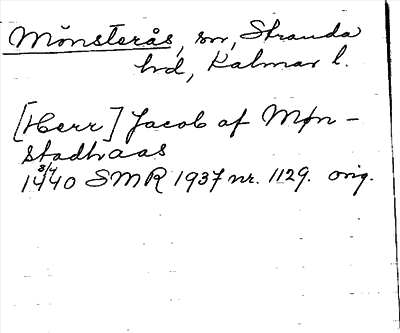 Mönsterås, sn, Stranda
hd, Kalmar l.
[Herr] Jacob af Møn-
stadhraas
1440 3/4 SMR 1937 nr. 1129. orig.